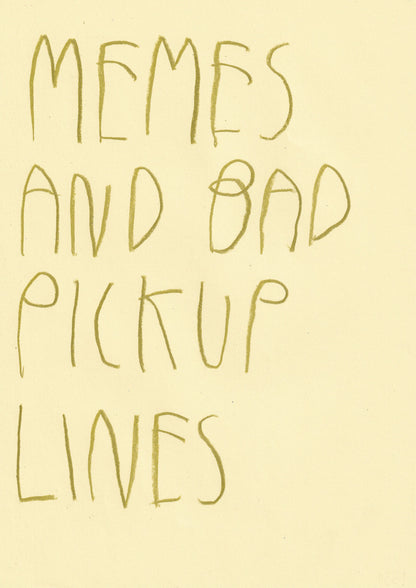 MEMES
AND BAD
PICKUP
LINES